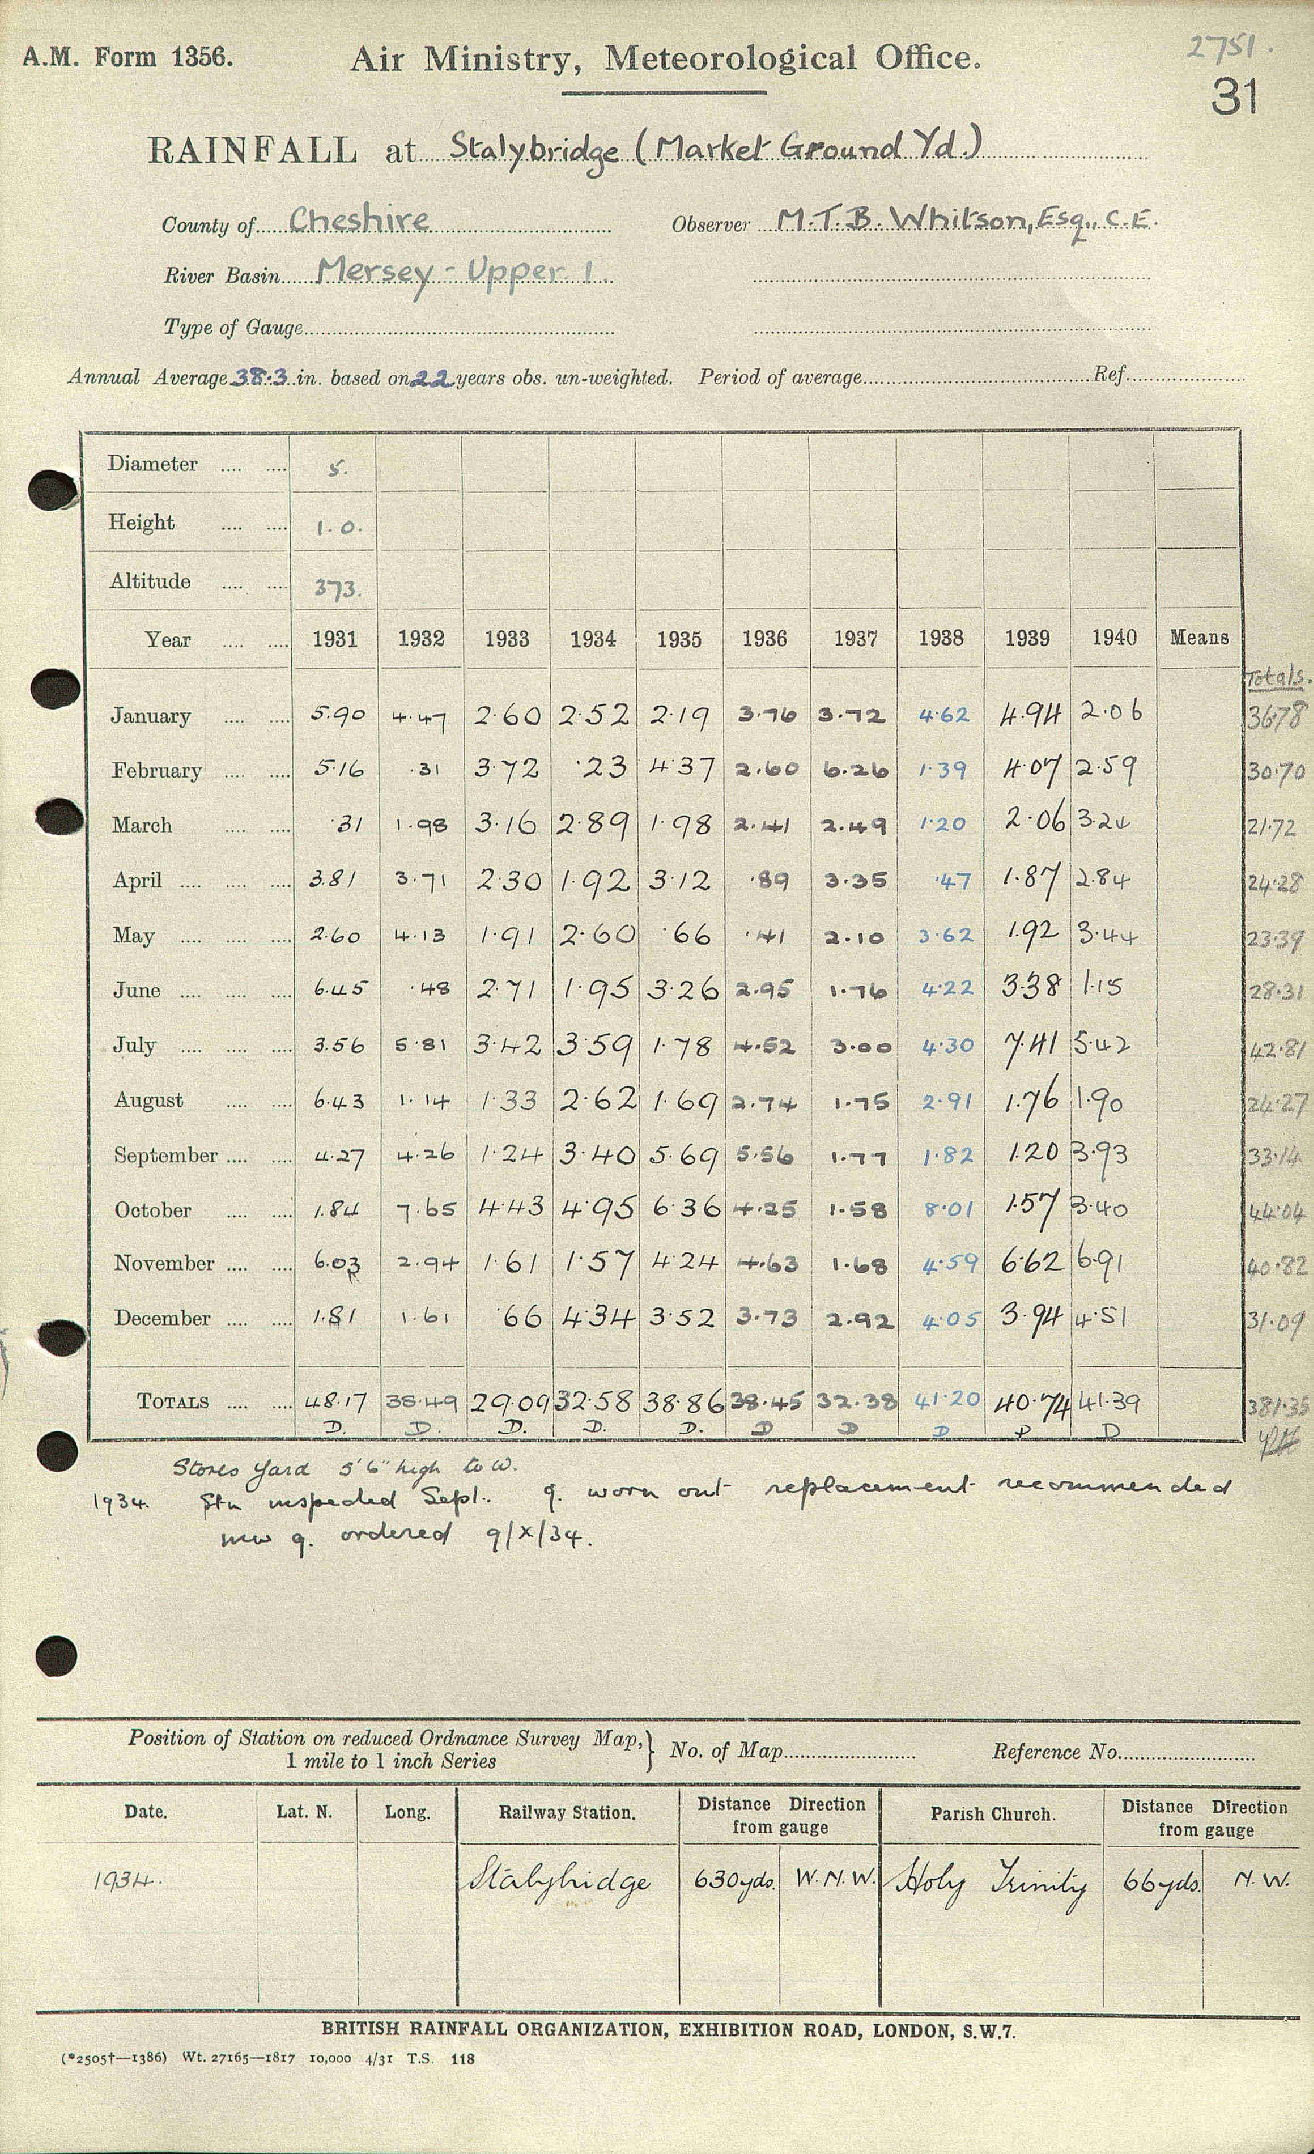 A.M. Form 1356.
Air Ministry, Meteorological Office.
2751.
31
RAINFALL at Stalybridge (Market Ground Yd.)
County of Cheshire Observer M.T.B. Whitson, Esq., C.E.
River Basin Mersey - Upper 1.
Type of Gauge
Annual Average 38.3 in. based on 22 years obs. un-weighted. Period of average Ref.
Diameter 5.
Height 1.0.
Altitude 373.
Year 1931 1932 1933 1934 1935 1936 1937 1938 1939 1940 Means
Totals.
January 5.90 4.47 2.60 2.52 2.19 3.76 3.72 4.62 4.94 2.06 36.78
February 5.16 .31 3.72 .23 4.37 2.60 6.26 1.39 4.07 2.59 30.70
March .31 1.98 3.16 2.89 1.98 2.41 2.49 1.20 2.06 3.24 21.72
April 3.81 3.71 2.30 1.92 3.12 .89 3.35 .47 1.87 2.84 24.28
May 2.60 4.13 1.91 2.60 .66 .41 2.10 3.62 1.92 3.44 23.39
June 6.45 .48 2.71 1.95 3.26 2.95 1.76 4.22 3.38 1.15 28.31
July 3.56 5.81 3.42 3.59 1.78 4.52 3.00 4.30 7.41 5.42 42.81
August 6.43 1.14 1.33 2.62 1.69 2.74 1.75 2.91 1.76 1.90 24.27
September 4.27 4.26 1.24 3.40 5.69 5.56 1.77 1.82 1.20 3.93 33.14
October 1.84 7.65 4.43 4.95 6.36 4.25 1.58 8.01 1.57 3.40 44.04
November 6.03 2.94 1.61 1.57 4.24 4.63 1.68 4.59 6.62 6.91 40.82
December 1.81 1.61 .66 4.34 3.52 3.73 2.92 4.05 3.94 4.51 31.09
TOTALS 48.17 38.49 29.09 32.58 38.86 38.45 32.38 41.20 40.74 41.39 381.35
D. D. D. D. D. D D D D D
Stores Yard 5'6" high to W.
1934. Stn inspected Sept. g. worn out replacement recommended
new g. ordered 9/X/34.
Position of Station on reduced Ordnance Survey Map, 1 mile to 1 inch Series } No. of Map Reference No.
Date. Lat. N. Long. Railway Station. Distance Direction from gauge Parish Church. Distance Direction from gauge
1934. Stalybridge 630yds. W.N.W. Holy Trinity 66yds. N.W.
BRITISH RAINFALL ORGANIZATION, EXHIBITION ROAD, LONDON, S.W.7.
(*2505†—1386) Wt. 27165—1817 10,000 4/31 T.S. 118